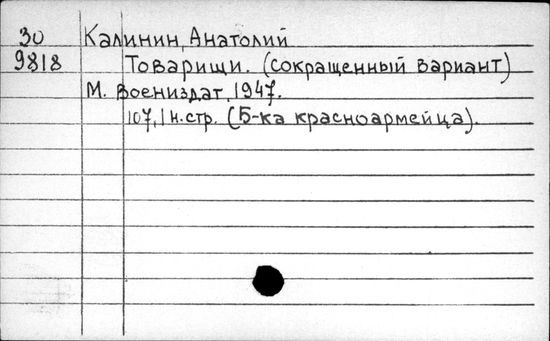 30 Калинин, Анатолий
9818 Товарищи. (сокращенный вариант)
М. Воениздат, 1947.
107,1 н.стр. (Б-ка красноармейца).